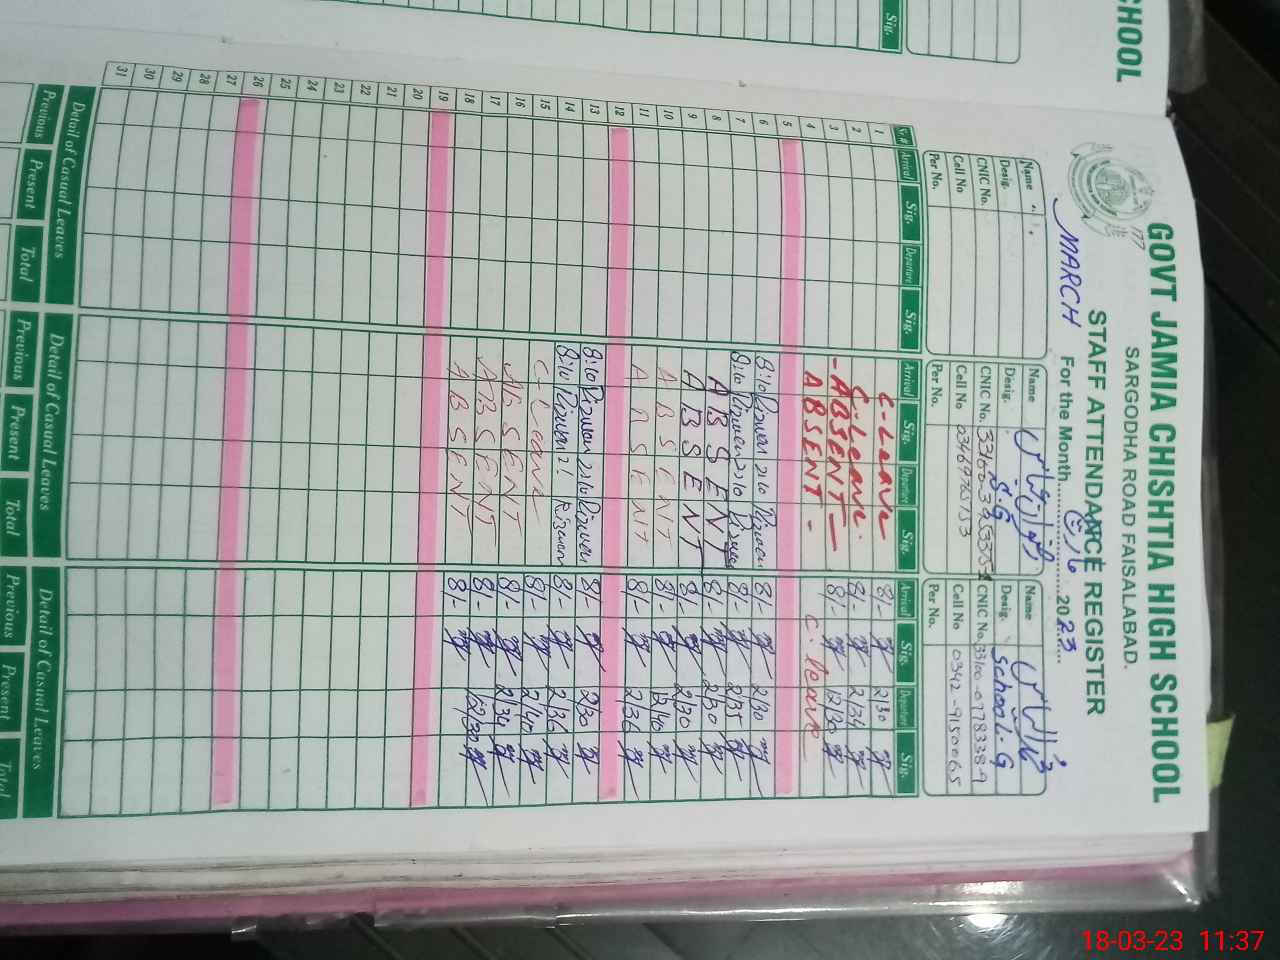 CHOOL
Sig.
GOVT JAMIA CHISHTIA HIGH SCHOOL
SARGODHA ROAD FAISALABAD.
STAFF ATTENDANCE REGISTER
MARCH For the Month مارچ 2023
Name
Desig.
CNIC No.
Cell No
Per No.
Name
Desig. S.G
CNIC No.
Cell No
Per No.
Name
Desig. School.G
CNIC No.
Cell No 0342-9150065
Per No.
Sr.# Arrival Sig. Departure Sig. Arrival Sig. Departure Sig. Arrival Sig. Departure Sig.
1 C-Leave 8/- 2/30
2 C-Leave 8/- 2/34
3 -ABSENT- 8/- 12/30
4 ABSENT- C. leave
5
6 8:10 Rizwan 2:10 Rizwan 8/- 2/30
7 8:10 Rizwan 2:10 Rizwan 8/- 2/35
8 ABSENT 8/- 2/30
9 ABSENT 8/- 2/30
10 ABSENT 8/- 12/40
11 ABSENT 8/- 2/36
12
13 8:10 Rizwan 2:10 Rizwan 8/- 2/30
14 8:10 Rizwan Rizwan 8/- 2/36
15 C-Leave 8/- 2/40
16 ABSENT 8/- 2/34
17 ABSENT 8/-
18 ABSENT 8/- 12/30
19
20
21
22
23
24
25
26
27
28
29
30
31
Detail of Casual Leaves Detail of Casual Leaves Detail of Casual Leaves
Previous Present Total Previous Present Total Previous Present Total
18-03-23 11:37